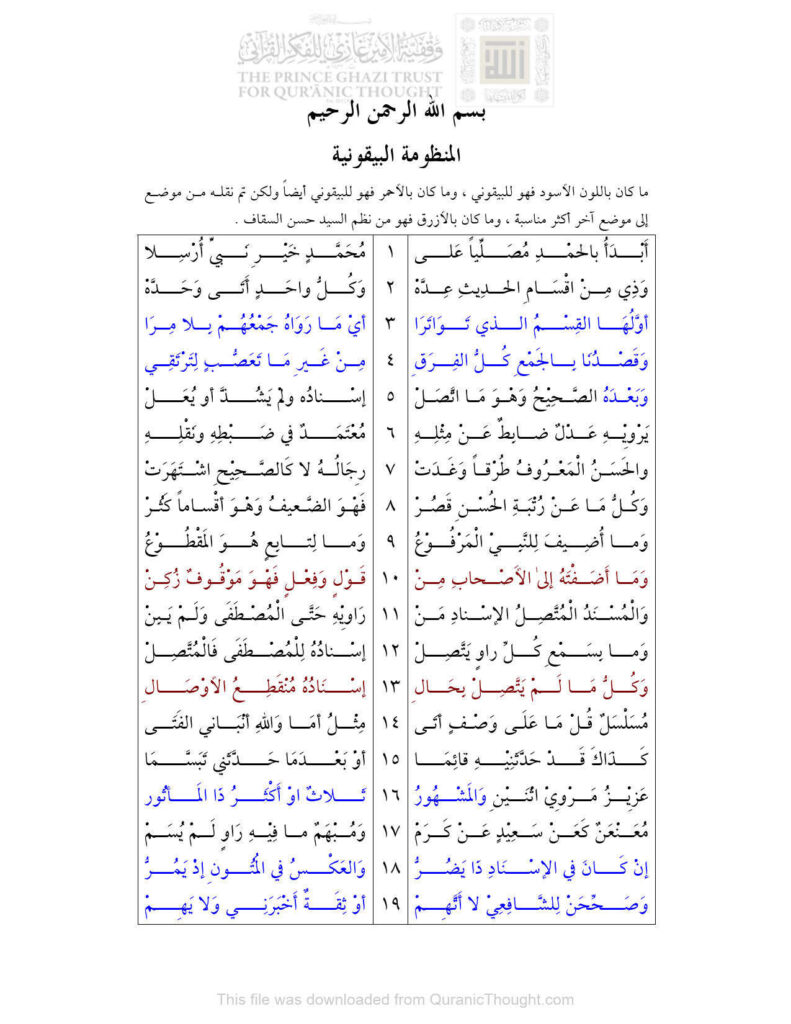 وقفية الأمير غازي للفكر القرآني
THE PRINCE GHAZI TRUST
FOR QUR'ĀNIC THOUGHT
بسم الله الرحمن الرحيم
المنظومة البيقونية
ما كان باللون الأسود فهو للبيقوني ، وما كان بالأحمر فهو للبيقوني أيضاً ولكن تم نقله من موضع
إلى موضع آخر أكثر مناسبة ، وما كان بالأزرق فهو من نظم السيد حسن السقاف .
أَبْدَأُ بالحمْدِ مُصَلِّياً عَلى ١ مُحَمَّدٍ خَيْرِ نَبيٍّ أُرْسِلا
وَذِي مِنْ اقْسَامِ الحديثِ عِدَّهْ ٢ وَكُلُّ واحَدٍ أَتَى وَحَدَّهْ
أوَّلُهَا القِسْمُ الذي تَوَاتَرَا ٣ أيْ مَا رَوَاهُ جَمْعُهُمْ بِلا مِرَا
وَقَصْدُنَا بِالجَمْعِ كُلُّ الفِرَقِ ٤ مِنْ غَيرِ مَا تَعَصُّبٍ لِتَرْتَقِي
وَبَعْدَهُ الصَّحِيْحُ وَهْوَ مَا اتَّصَلْ ٥ إسْنادُه ولمْ يَشُذَّ أو يُعَلْ
يَرْوِيْهِ عَدْلٌ ضابِطٌ عَنْ مِثْلِهِ ٦ مُعْتَمَدٌ في ضَبْطِهِ ونَقْلِهِ
والحَسَنُ الْمَعْرُوفُ طُرْقاً وَغَدَتْ ٧ رِجَالُهُ لا كَالصَّحِيْحِ اشْتَهَرَتْ
وَكُلُّ مَا عَنْ رُتْبَةِ الحُسْنِ قَصُرْ ٨ فَهْوَ الضَّعيفُ وَهْوَ أقْساماً كَثُرْ
وَما أُضيفَ لِلنَّبيْ الْمَرْفُوْعُ ٩ وَما لِتابِعٍ هُوَ المَقْطُوْعُ
وَمَا أَضَفْتَهُ إلى الأصْحابِ مِنْ ١٠ قَوْلٍ وَفِعْلٍ فَهْوَ مَوْقُوفٌ زُكِنْ
وَالْمُسْنَدُ الْمُتَّصِلُ الإسْنادِ مَنْ ١١ رَاوِيْهِ حَتَّى الْمُصْطَفَى وَلَمْ يَبِنْ
وَما بِسَمْعِ كُلِّ راوٍ يَتَّصِلْ ١٢ إسْنادُهُ لِلْمُصْطَفَى فَالْمُتَّصِلْ
وَكُلُّ مَا لَمْ يَتَّصِلْ بِحَالِ ١٣ إسْنَادُهُ مُنْقَطِعُ الأوْصَالِ
مُسَلْسَلٌ قُلْ مَا عَلَى وَصْفٍ أتَى ١٤ مِثْلُ أمَا وَاللهِ أنْبَاني الفَتَى
كَذاكَ قَدْ حَدَّثَنِيْهِ قائِمَا ١٥ أوْ بَعْدَمَا حَدَّثَني تَبَسَّمَا
عَزِيْزُ مَرْوِيْ اثْنَيْنِ وَالمَشْهُورُ ١٦ ثَلاثٌ اوْ أَكْثَرُ ذَا المَأثُور
مُعَنْعَنٌ كَعَنْ سَعِيْدٍ عَنْ كَرَمْ ١٧ وَمُبْهَمٌ ما فِيْهِ رَاوٍ لَمْ يُسَمْ
إنْ كَانَ في الإسْنَادِ ذَا يَضُرُّ ١٨ وَالعَكْسُ في المُتُونِ إذْ يَمُرُّ
وَصَحِّحَنْ لِلشَّافِعِيْ لا أتَّهِمْ ١٩ أوْ ثِقَةٌ أَخْبَرَني وَلا يَهِمْ
This file was downloaded from QuranicThought.com